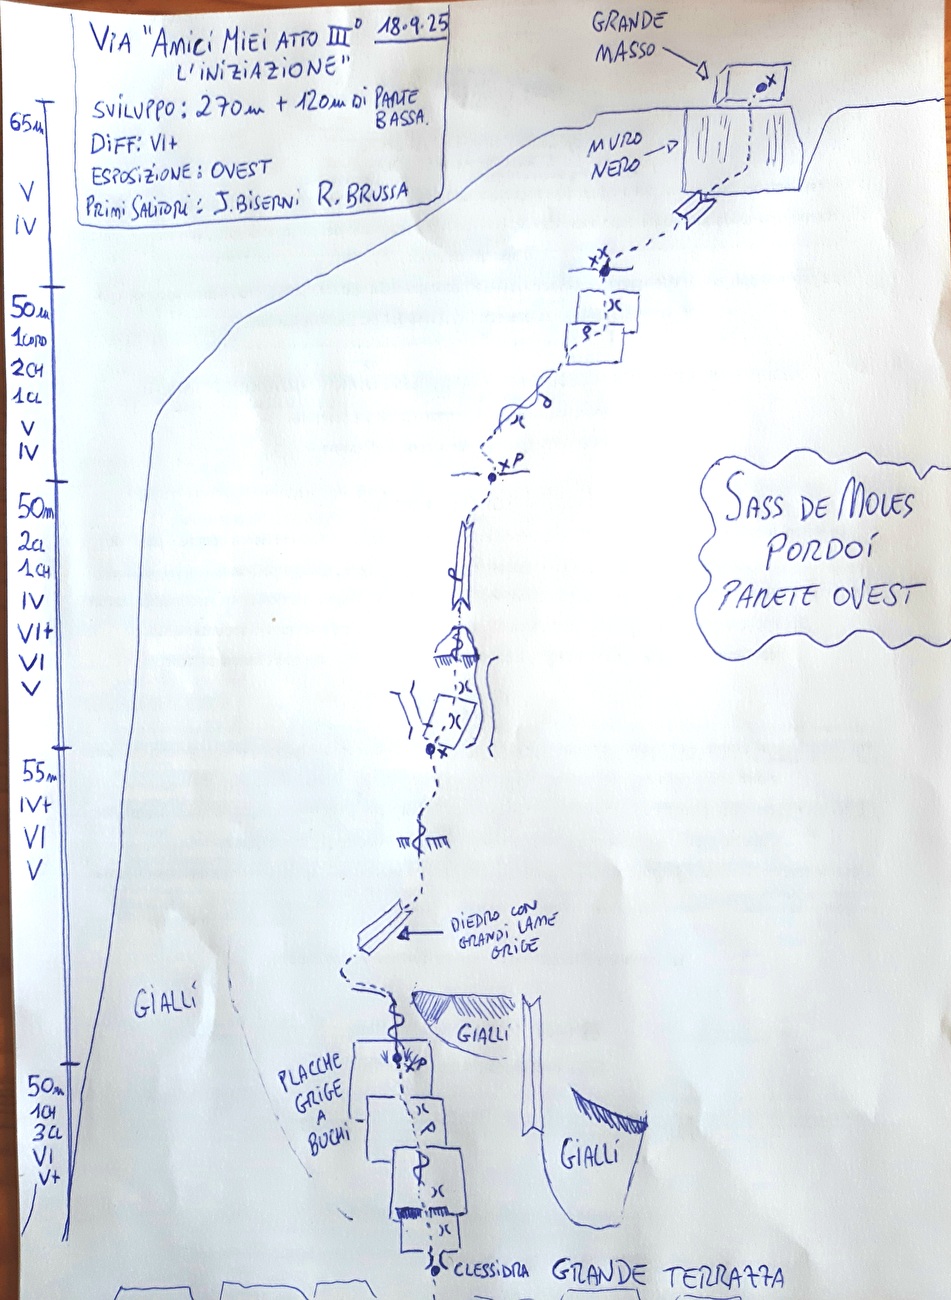 VIA "AMICI MIEI ATTO III° 18.9.25
L'INIZIAZIONE"
SVILUPPO: 270m + 120m DI PARTE
BASSA.
DIFF: VI+
ESPOSIZIONE: OVEST
PRIMI SALITORI: J.BISERNI R. BRUSSA
GRANDE
MASSO
MURO
NERO
65m
V
IV
50m
1CORD
2CH
1CL
V
IV
50m
2CL
1CH
IV
VI+
VI
V
55m
IV+
VI
V
50m
1CH
3CL
VI
V+
SASS DE MOLES
PORDOÍ
PARETE OVEST
DIEDRO CON
GRANDI LAME
GRIGE
GIALLI
GIALLI
PLACCHE
GRIGE
A
BUCHI
GIALLI
CLESSIDRA GRANDE TERRAZZA
x
xx
xP
x
xP